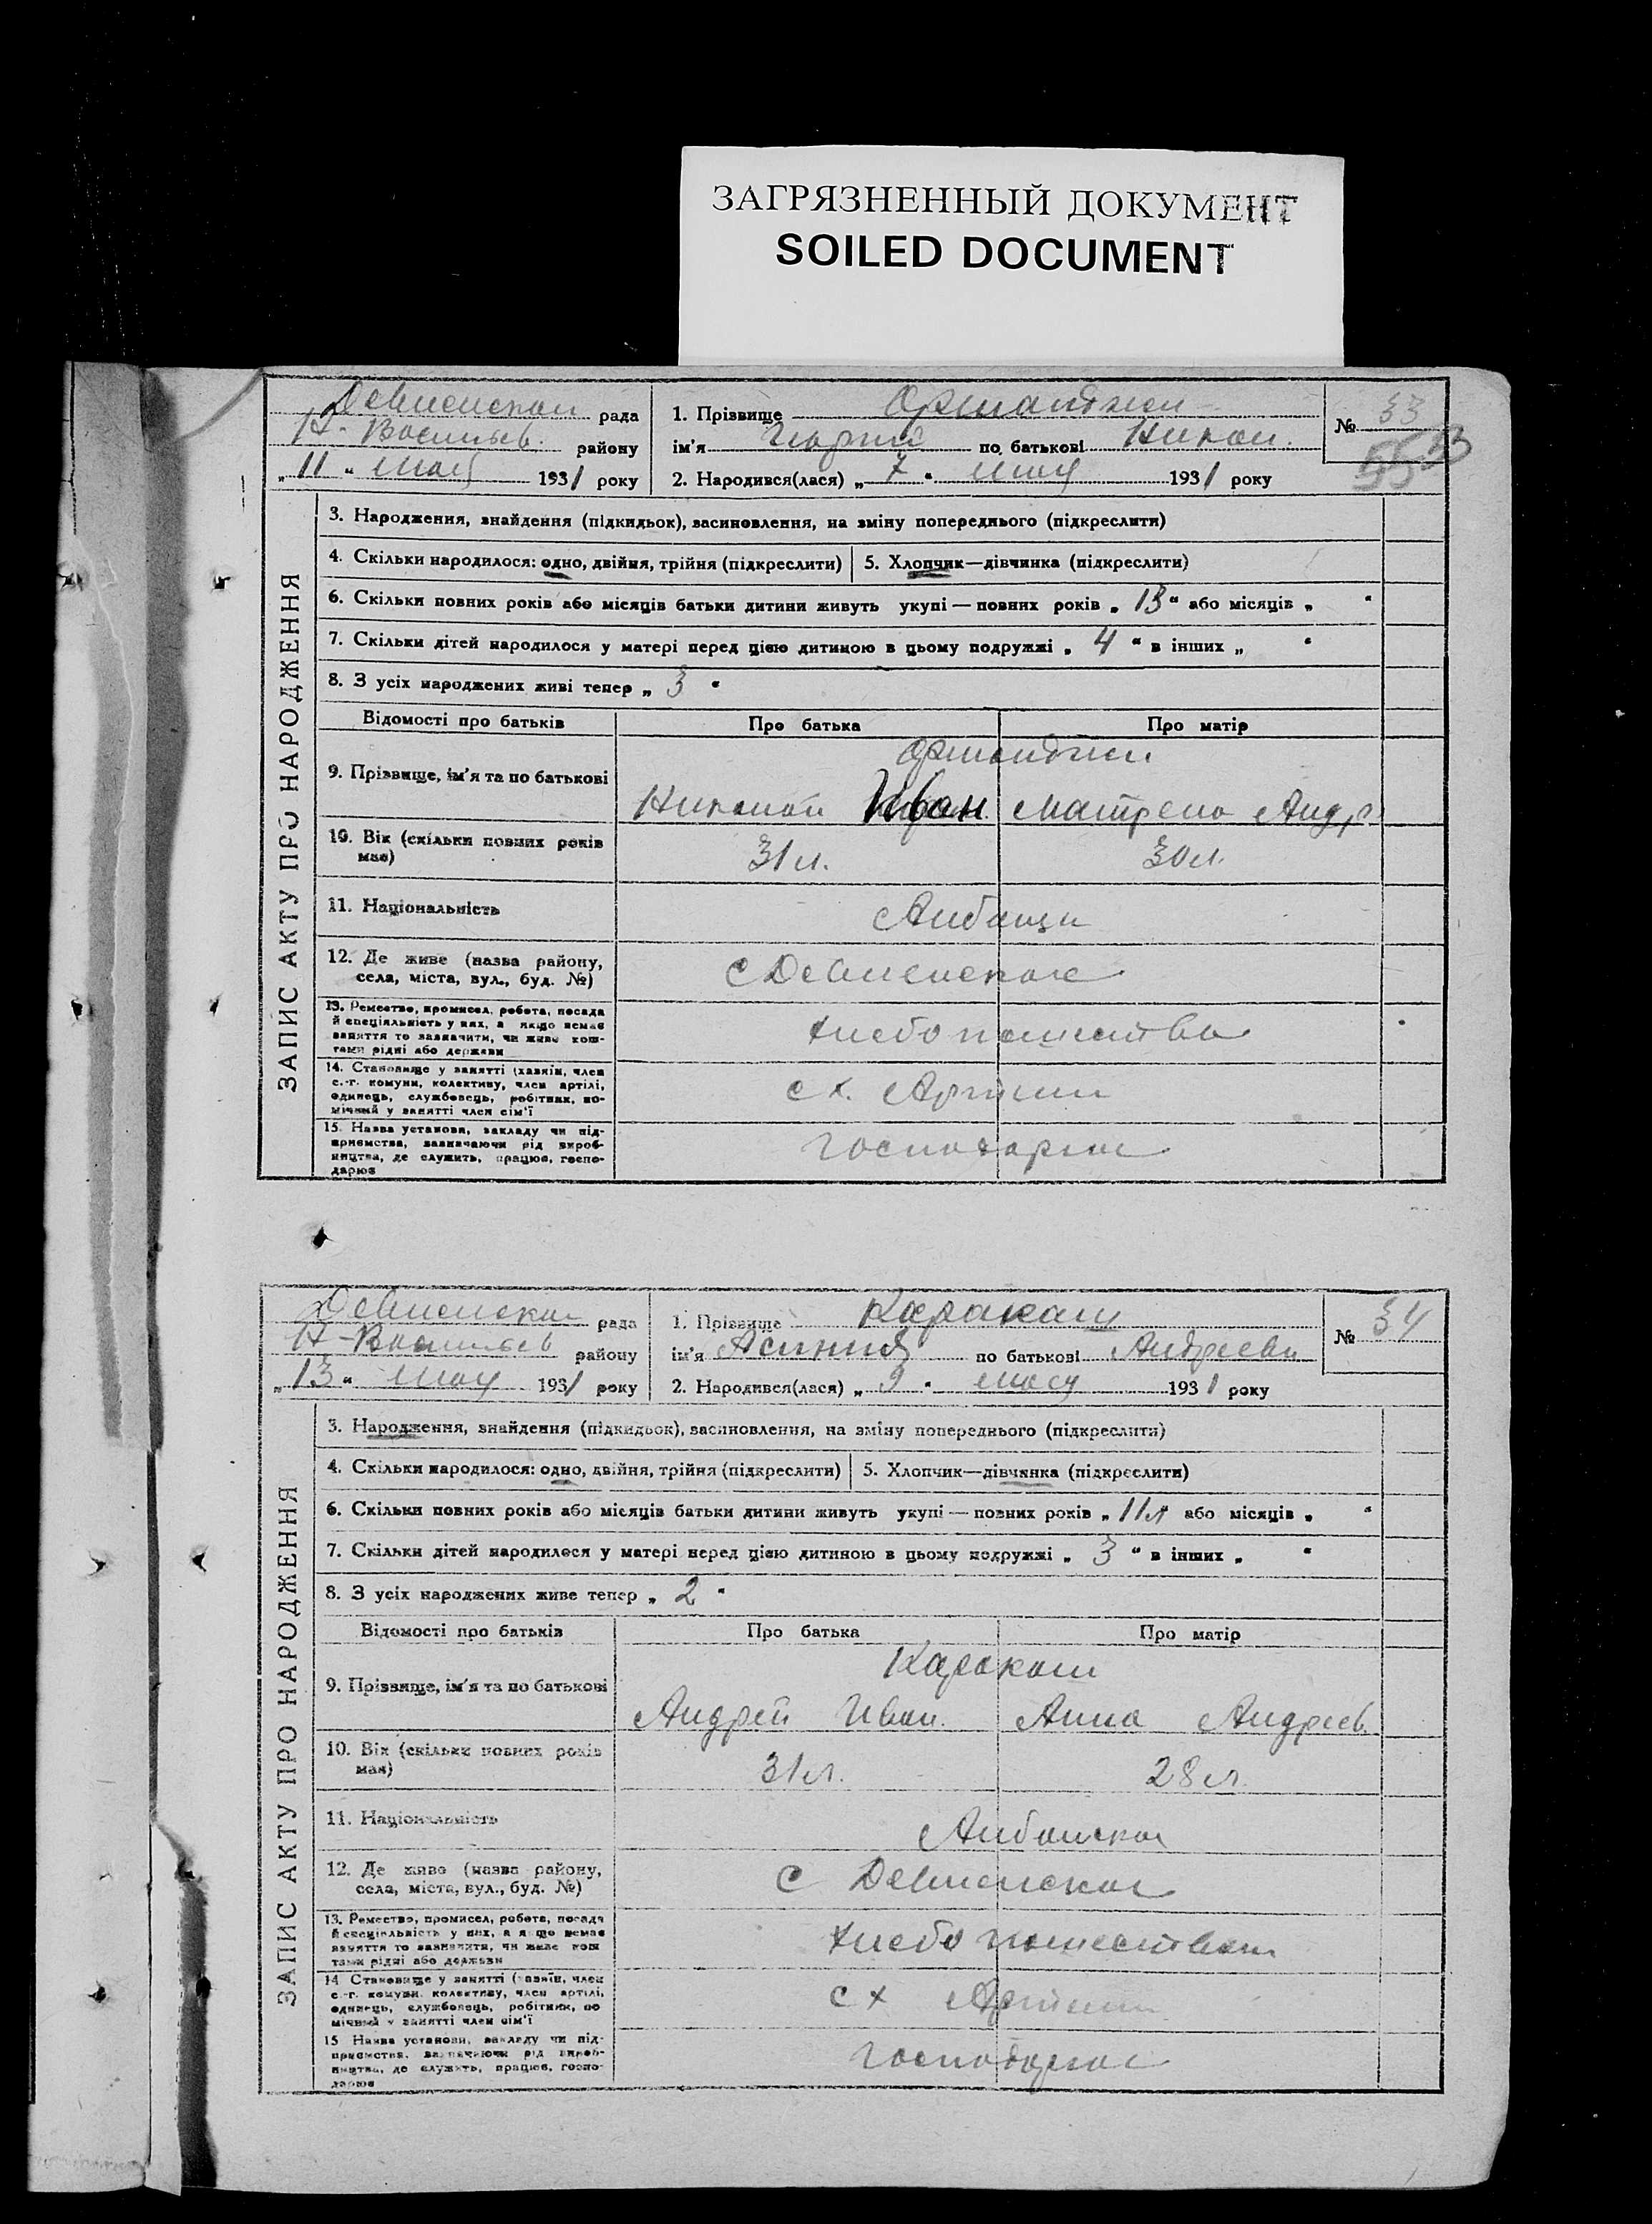 ЗАГРЯЗНЕННЫЙ ДОКУМЕНТ
SOILED DOCUMENT
Девненская рада
Н-Васильев. району
„ 11 “ мая 1931 року
1. Прізвище
ім'я Гиоргий по батькові Никол.
2. Народився(лася) „ 7 “ мая 1931 року
№ 33
53
ЗАПИС АКТУ ПРО НАРОДЖЕННЯ
3. Народження, знайдення (підкидьок), засиновлення, на зміну попереднього (підкреслити)
4. Скільки народилося: одно, двійня, трійня (підкреслити)
5. Хлопчик—дівчинка (підкреслити)
6. Скільки повних років або місяців батьки дитини живуть укупі — повних років „ 13 “ або місяців „ “
7. Скільки дітей народилося у матері перед цією дитиною в цьому подружжі „ 4 “ в інших „ “
8. З усіх народжених живі тепер „ 3 “
Відомості про батьків
Про батька
Про матір
9. Прізвище, ім'я та по батькові
Николай Иван
Матрена Андр
10. Вік (скільки повних років має)
31 л.
30 л.
11. Національність
Албанци
12. Де живе (назва району,
села, міста, вул., буд. №)
с Девненское
13. Ремество, промисел, робота, посада
й спеціяльність у них, а якщо немає
заняття то зазначити, чи живе кош-
тами рідні або держави
хлебопашество
14. Становище у занятті (хазяїн, член
с.-г. комуни, колективу, член артілі,
одинець, службовець, робітник, по-
мічний у занятті член сім'ї
с х. Артели
15. Назва установи, закладу чи під-
приємства, зазначаючи рід вироб-
ництва, де служить, працює, госпо-
дарює
Девненская рада
Н-Васильев району
„ 13 “ мая 1931 року
1. Прізвище Каракаш
ім'я по батькові Андреевн
2. Народився(лася) „ 9 “ мая 1931 року
№ 34
ЗАПИС АКТУ ПРО НАРОДЖЕННЯ
3. Народження, знайдення (підкидьок), засиновлення, на зміну попереднього (підкреслити)
4. Скільки народилося: одно, двійня, трійня (підкреслити)
5. Хлопчик—дівчинка (підкреслити)
6. Скільки повних років або місяців батьки дитини живуть укупі — повних років „ 11 л або місяців „ “
7. Скільки дітей народилося у матері перед цією дитиною в цьому подружжі „ 3 “ в інших „ “
8. З усіх народжених живе тепер „ 2 “
Відомості про батьків
Про батька
Про матір
9. Прізвище, ім'я та по батькові
Каракаш
Андрей Иван.
Анна Андреев.
10. Вік (скільки повних років має)
31 л.
28 л.
11. Національність
Албанская
12. Де живе (назва району,
села, міста, вул., буд. №)
с Девненское
13. Ремество, промисел, робота, посада
й спеціяльність у них, а якщо немає
заняття то зазначити, чи живе кош
тами рідні або держави
14. Становище у занятті (хазяїн, член
с.-г. комуни, колективу, член артілі,
одинець, службовець, робітник, по
мічний у занятті член сім'ї
с х Артели
15. Назва установи, закладу чи під-
приємства, зазначаючи рід вироб-
ництва, де служить, працює, госпо-
дарює